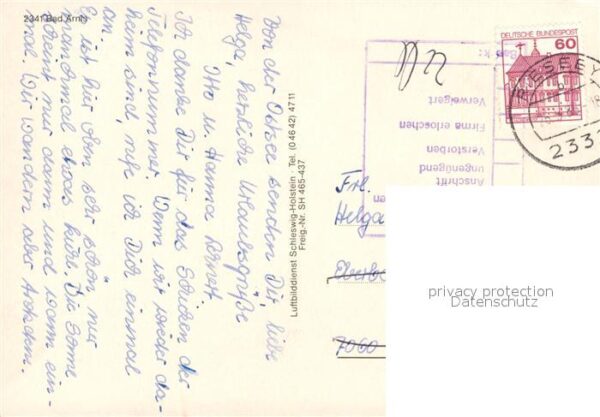 2341 Bad Arnis
Von der Ostsee senden Dir, liebe
Helga, herzliche Urlaubsgrüße
Otto u. Hanna
Ich danke Dir für das Schreiben der
Telefonnummer. Wenn wir wieder da-
heim sind, rufe ich Dich einmal
an.
Es ist hier oben sehr schön nur
manchmal etwas kühl. Die Sonne
scheint nur dann und wann ein-
mal. Wir wandern aber trotzdem.
Luftbilddienst Schleswig-Holstein · Tel. (0 46 42) 47 11
Freig.-Nr. SH 465-437
DEUTSCHE BUNDESPOST
60
RIESEBY
2331
Verweigert
Firma erloschen
Verstorben
Anschrift
ungenügend
Frl.
Helga
7060
privacy protection
Datenschutz